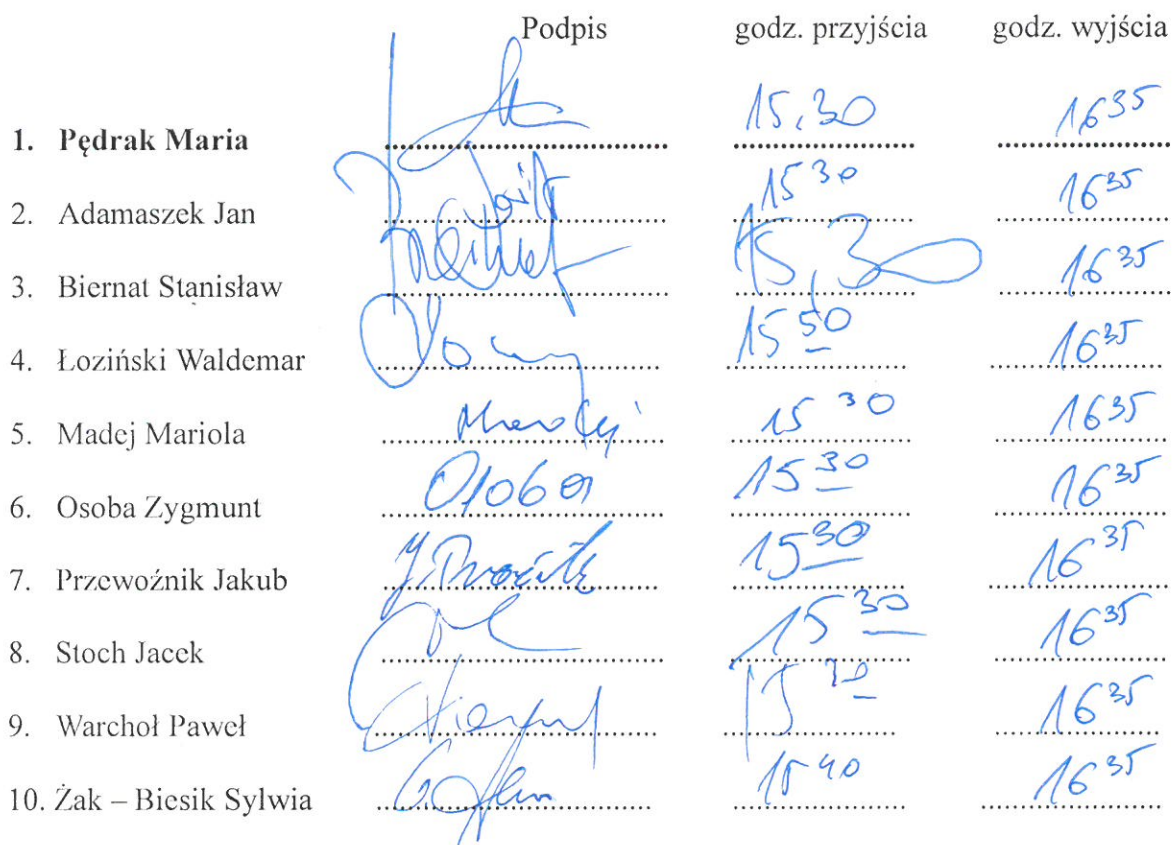 Podpis godz. przyjścia godz. wyjścia
1. Pędrak Maria 15,30 16 35
2. Adamaszek Jan 15 30 16 35
3. Biernat Stanisław 15,30 16 35
4. Łoziński Waldemar 15 50 16 35
5. Madej Mariola 15 30 16 35
6. Osoba Zygmunt 15 30 16 35
7. Przewoźnik Jakub 15 30 16 35
8. Stoch Jacek 15 30 16 35
9. Warchoł Paweł 15 30 16 35
10. Żak – Biesik Sylwia 15 40 16 35